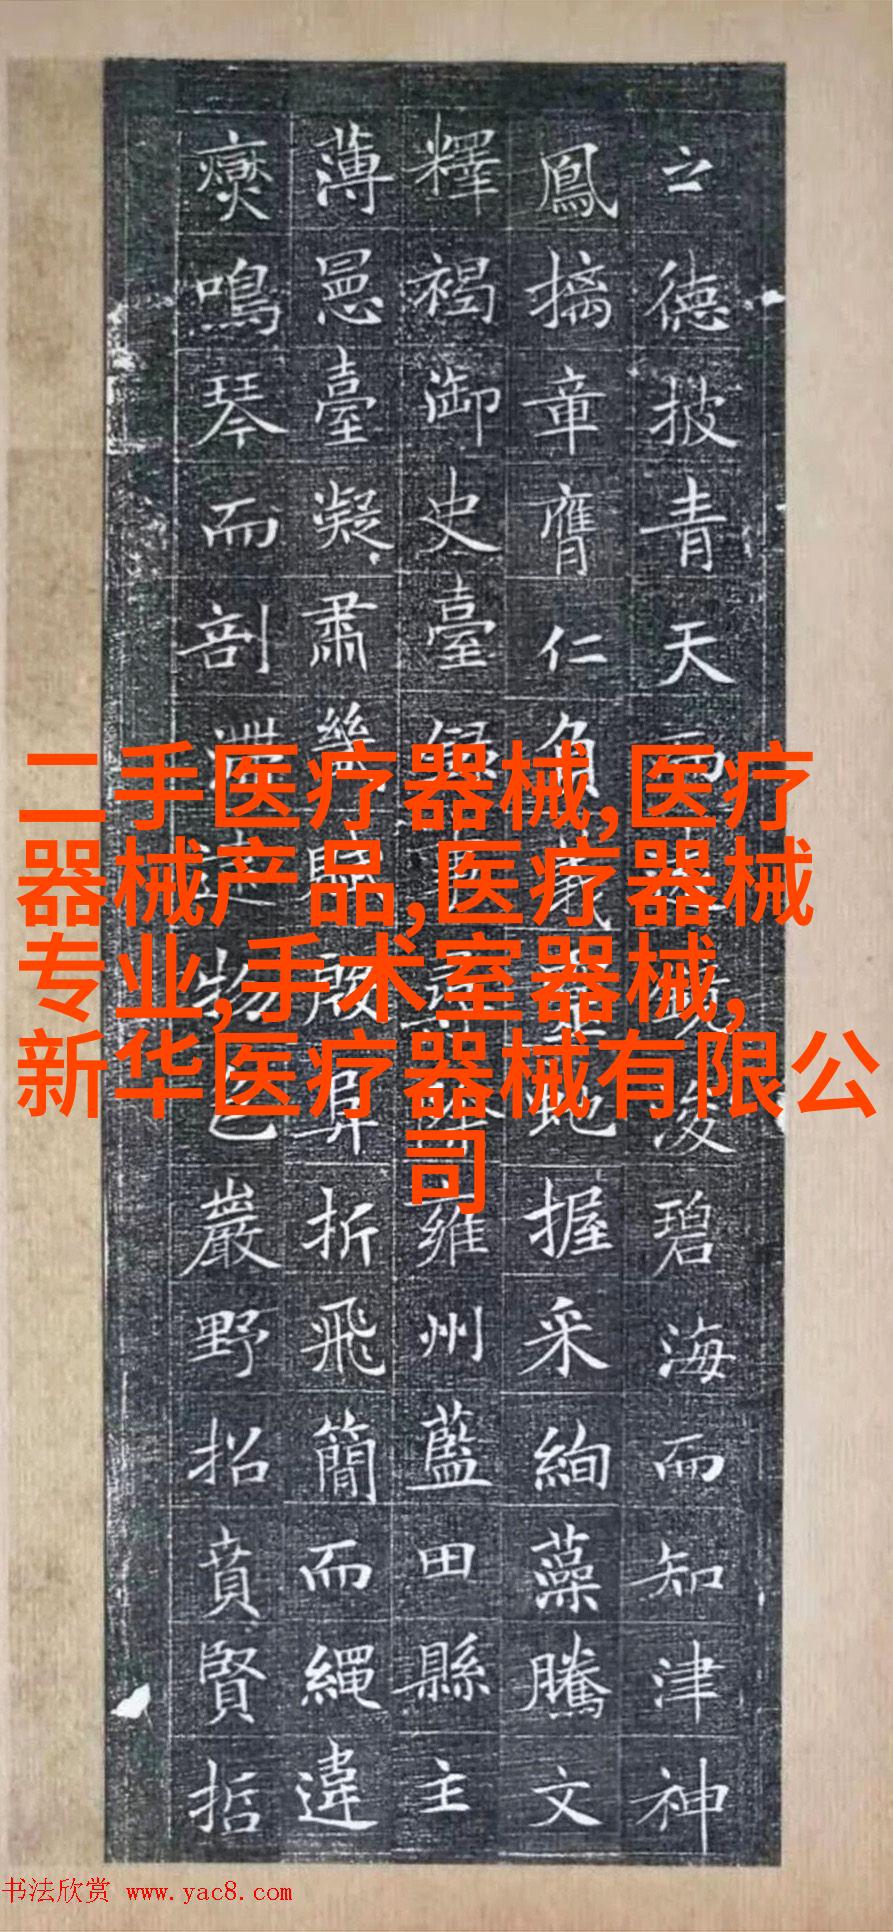 之德披青天而浚碧海而知津神
鳳摛章膺仁負虵握采絢藻騰文
釋褐御史臺録事尋除雍州藍田縣主
薄憲臺凝肅畿賦殷阜折飛簡而繩違
鳴琴而剖滯逮物色巖野招賁賢哲
二手医疗器械,医疗
器械产品,医疗器械
专业,手术室器械,
新华医疗器械有限公
司
书法欣赏 www.yac8.com